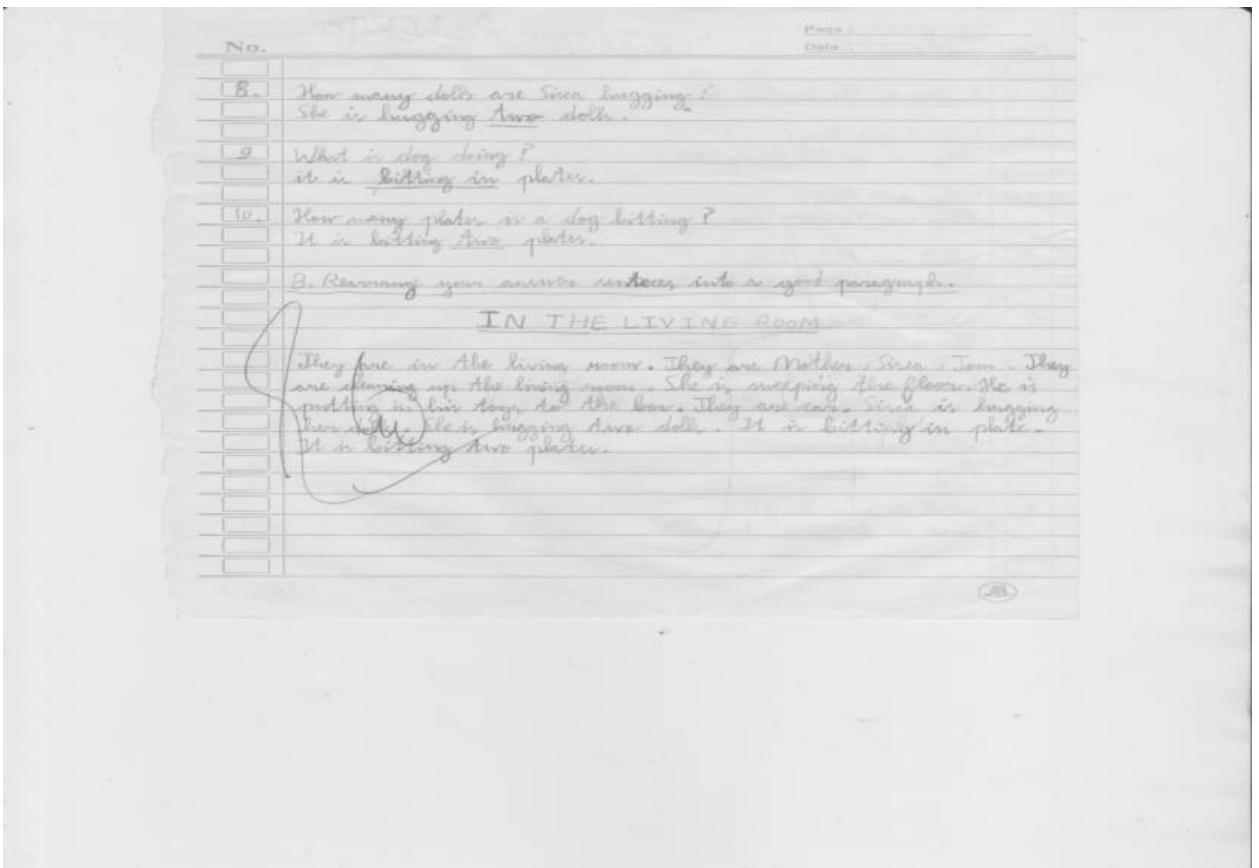 No.
Page :
Date :
8. How many dolls are Sisca hugging ?
She is hugging two dolls.
9 What is dog doing ?
it is bitting in plates.
10. How many plates is a dog bitting ?
It is bitting two plates.
B. Rearrange your answer sentences into a good paragraph.
IN THE LIVING ROOM
They are in the living room. They are Mother, Sisca, Tom. They
are cleaning up the living room. She is sweeping the floor. He is
putting in his toys to the box. They are car. Sisca is hugging
her dolls. She is hugging two dolls. It is bitting in plate.
It is bitting two plates.